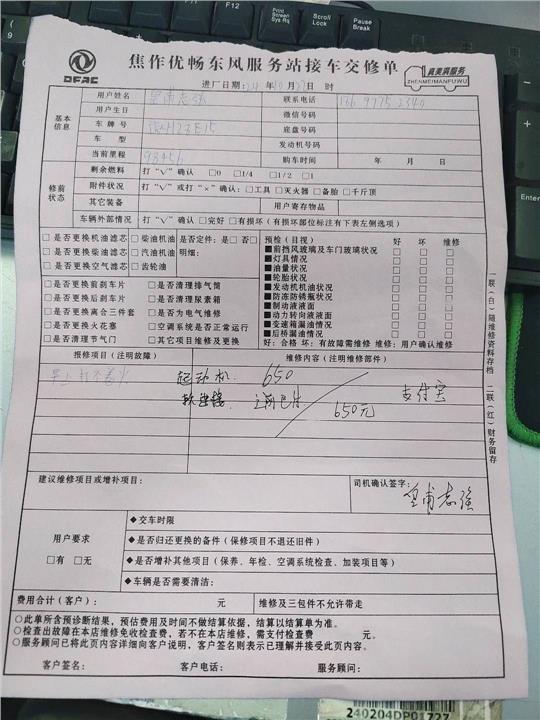 焦作优畅东风服务站接车交修单
DFAC
真美满服务
ZHENMEIMANFUWU
进厂日期: 年 月 日 时
基本信息
用户姓名
联系电话
用户生日
微信号码
车牌号
底盘号码
车 型
发动机号码
当前里程 98456
购车时间 年 月 日
修前状态
剩余燃料 打“V”确认 □0 □1/4 □1/2 □1
附件状况 打“V”或打“×”确认:□工具 □灭火器 □备胎 □千斤顶
其它装备
用户寄存物品
车辆外部情况 打“V”确认 □完好 □有损坏(有损坏部位标注有下表左侧选项)
□是否更换机油滤芯 □柴油机油 是否定件:是□否□
□是否更换柴油滤芯 □汽油机油 明细:
□是否更换空气滤芯 □齿轮油
□是否更换前刹车片 □是否清理排气筒
□是否更换后刹车片 □是否清理尿素箱
□是否更换离合三件套 □是否为电气维修
□是否更换火花塞 □空调系统是否正常运行
□是否清理节气门 □其它项目维修及更换
预检(目视) 好 坏 维修
■前挡风玻璃及车门玻璃状况 □ □ □
■灯具情况 □ □ □
■油量状况 □ □ □
■轮胎状况 □ □ □
■发动机机油状况 □ □ □
■防冻防锈瓶状况 □ □ □
■制动液液面 □ □ □
■动力转向液液面 □ □ □
■变速箱漏油情况 □ □ □
■后桥漏油情况 □ □ □
好:合格 坏:有故障需维修 维修:用户确认维修
报修项目(注明故障)
维修内容(注明维修部件)
早上打不着火
起动机 650
软连接
650元
支付宝
建议维修项目或增补项目:
司机确认签字:
皇甫志强
用户要求
□有 □无
◆交车时限
◆是否归还更换的备件(保修项目不退还旧件)
◆是否增补其他项目(保养、年检、空调系统检查、加装项目等)
◆车辆是否需要清洁:
费用合计(客户): 元
维修及三包件不允许带走
○此单所含预诊断结果,预估费用及时间不做结算依据,结算以结算单为准。
○检查出故障在本店维修免收检查费,若不在本店维修,需支付检查费 元。
○服务顾问已将此页内容详细向客户说明,客户签名则表示已理解并接受此页内容。
客户签名: 客户电话: 服务顾问:
一联(白)随维修资料存档 二联(红)财务留存
F12
Print Screen SysRq
Scroll Lock
Pause Break
Enter
240204DP01727